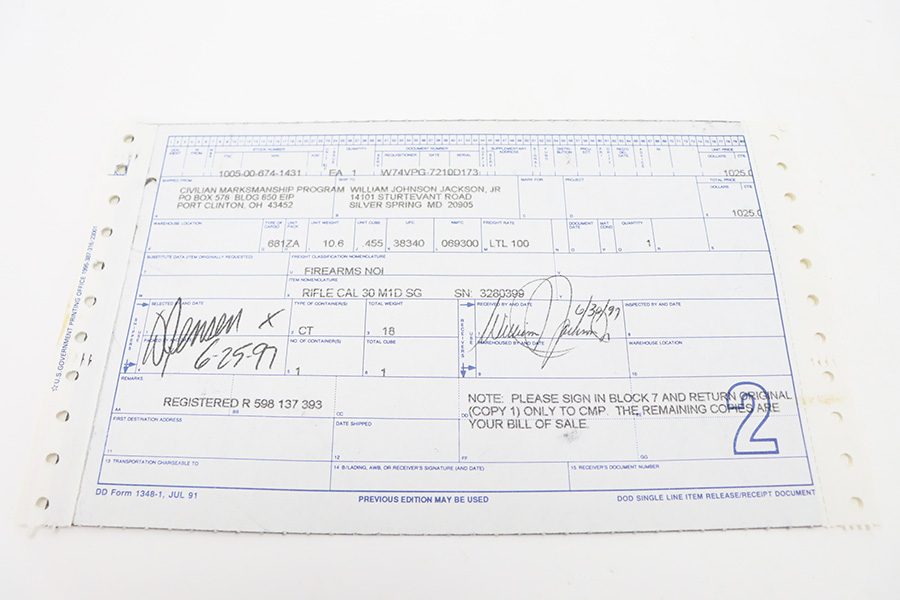 STOCK NUMBER QUANTITY DOCUMENT NUMBER SUPPLEMENTARY ADDRESS UNIT PRICE
REQUISITIONER DATE SERIAL DOLLARS CTS
1005-00-674-1431 EA 1 W74VPG 7210D173 1025.0
SHIPPED FROM SHIP TO MARK FOR PROJECT TOTAL PRICE
DOLLARS CTS
CIVILIAN MARKSMANSHIP PROGRAM WILLIAM JOHNSON JACKSON, JR
PO BOX 576 BLDG 650 EIP 14101 STURTEVANT ROAD
PORT CLINTON, OH 43452 SILVER SPRING MD 20905
1025.0
WAREHOUSE LOCATION TYPE OF CARGO UNIT PACK UNIT WEIGHT UNIT CUBE UFC NMFC FREIGHT RATE DOCUMENT DATE MAT COND QUANTITY
681ZA 10.6 455 38340 069300 LTL 100 1
SUBSTITUTE DATA (ITEM ORIGINALLY REQUESTED) FREIGHT CLASSIFICATION NOMENCLATURE
FIREARMS NOI
ITEM NOMENCLATURE
RIFLE CAL 30 M1D SG SN: 3280399
SELECTED BY AND DATE TYPE OF CONTAINER(S) TOTAL WEIGHT RECEIVED BY AND DATE INSPECTED BY AND DATE
6/30/97
CT 18
6-25-97
NO OF CONTAINER(S) TOTAL CUBE WAREHOUSED BY AND DATE WAREHOUSE LOCATION
1 1
REMARKS
REGISTERED R 598 137 393
AA BB CC DD
NOTE: PLEASE SIGN IN BLOCK 7 AND RETURN ORIGINAL
(COPY 1) ONLY TO CMP. THE REMAINING COPIES ARE
YOUR BILL OF SALE.
2
FIRST DESTINATION ADDRESS DATE SHIPPED
GG
13 TRANSPORTATION CHARGEABLE TO 14 B/LADING, AWB, OR RECEIVER'S SIGNATURE (AND DATE) 15 RECEIVER'S DOCUMENT NUMBER
DD Form 1348-1, JUL 91 PREVIOUS EDITION MAY BE USED DOD SINGLE LINE ITEM RELEASE/RECEIPT DOCUMENT